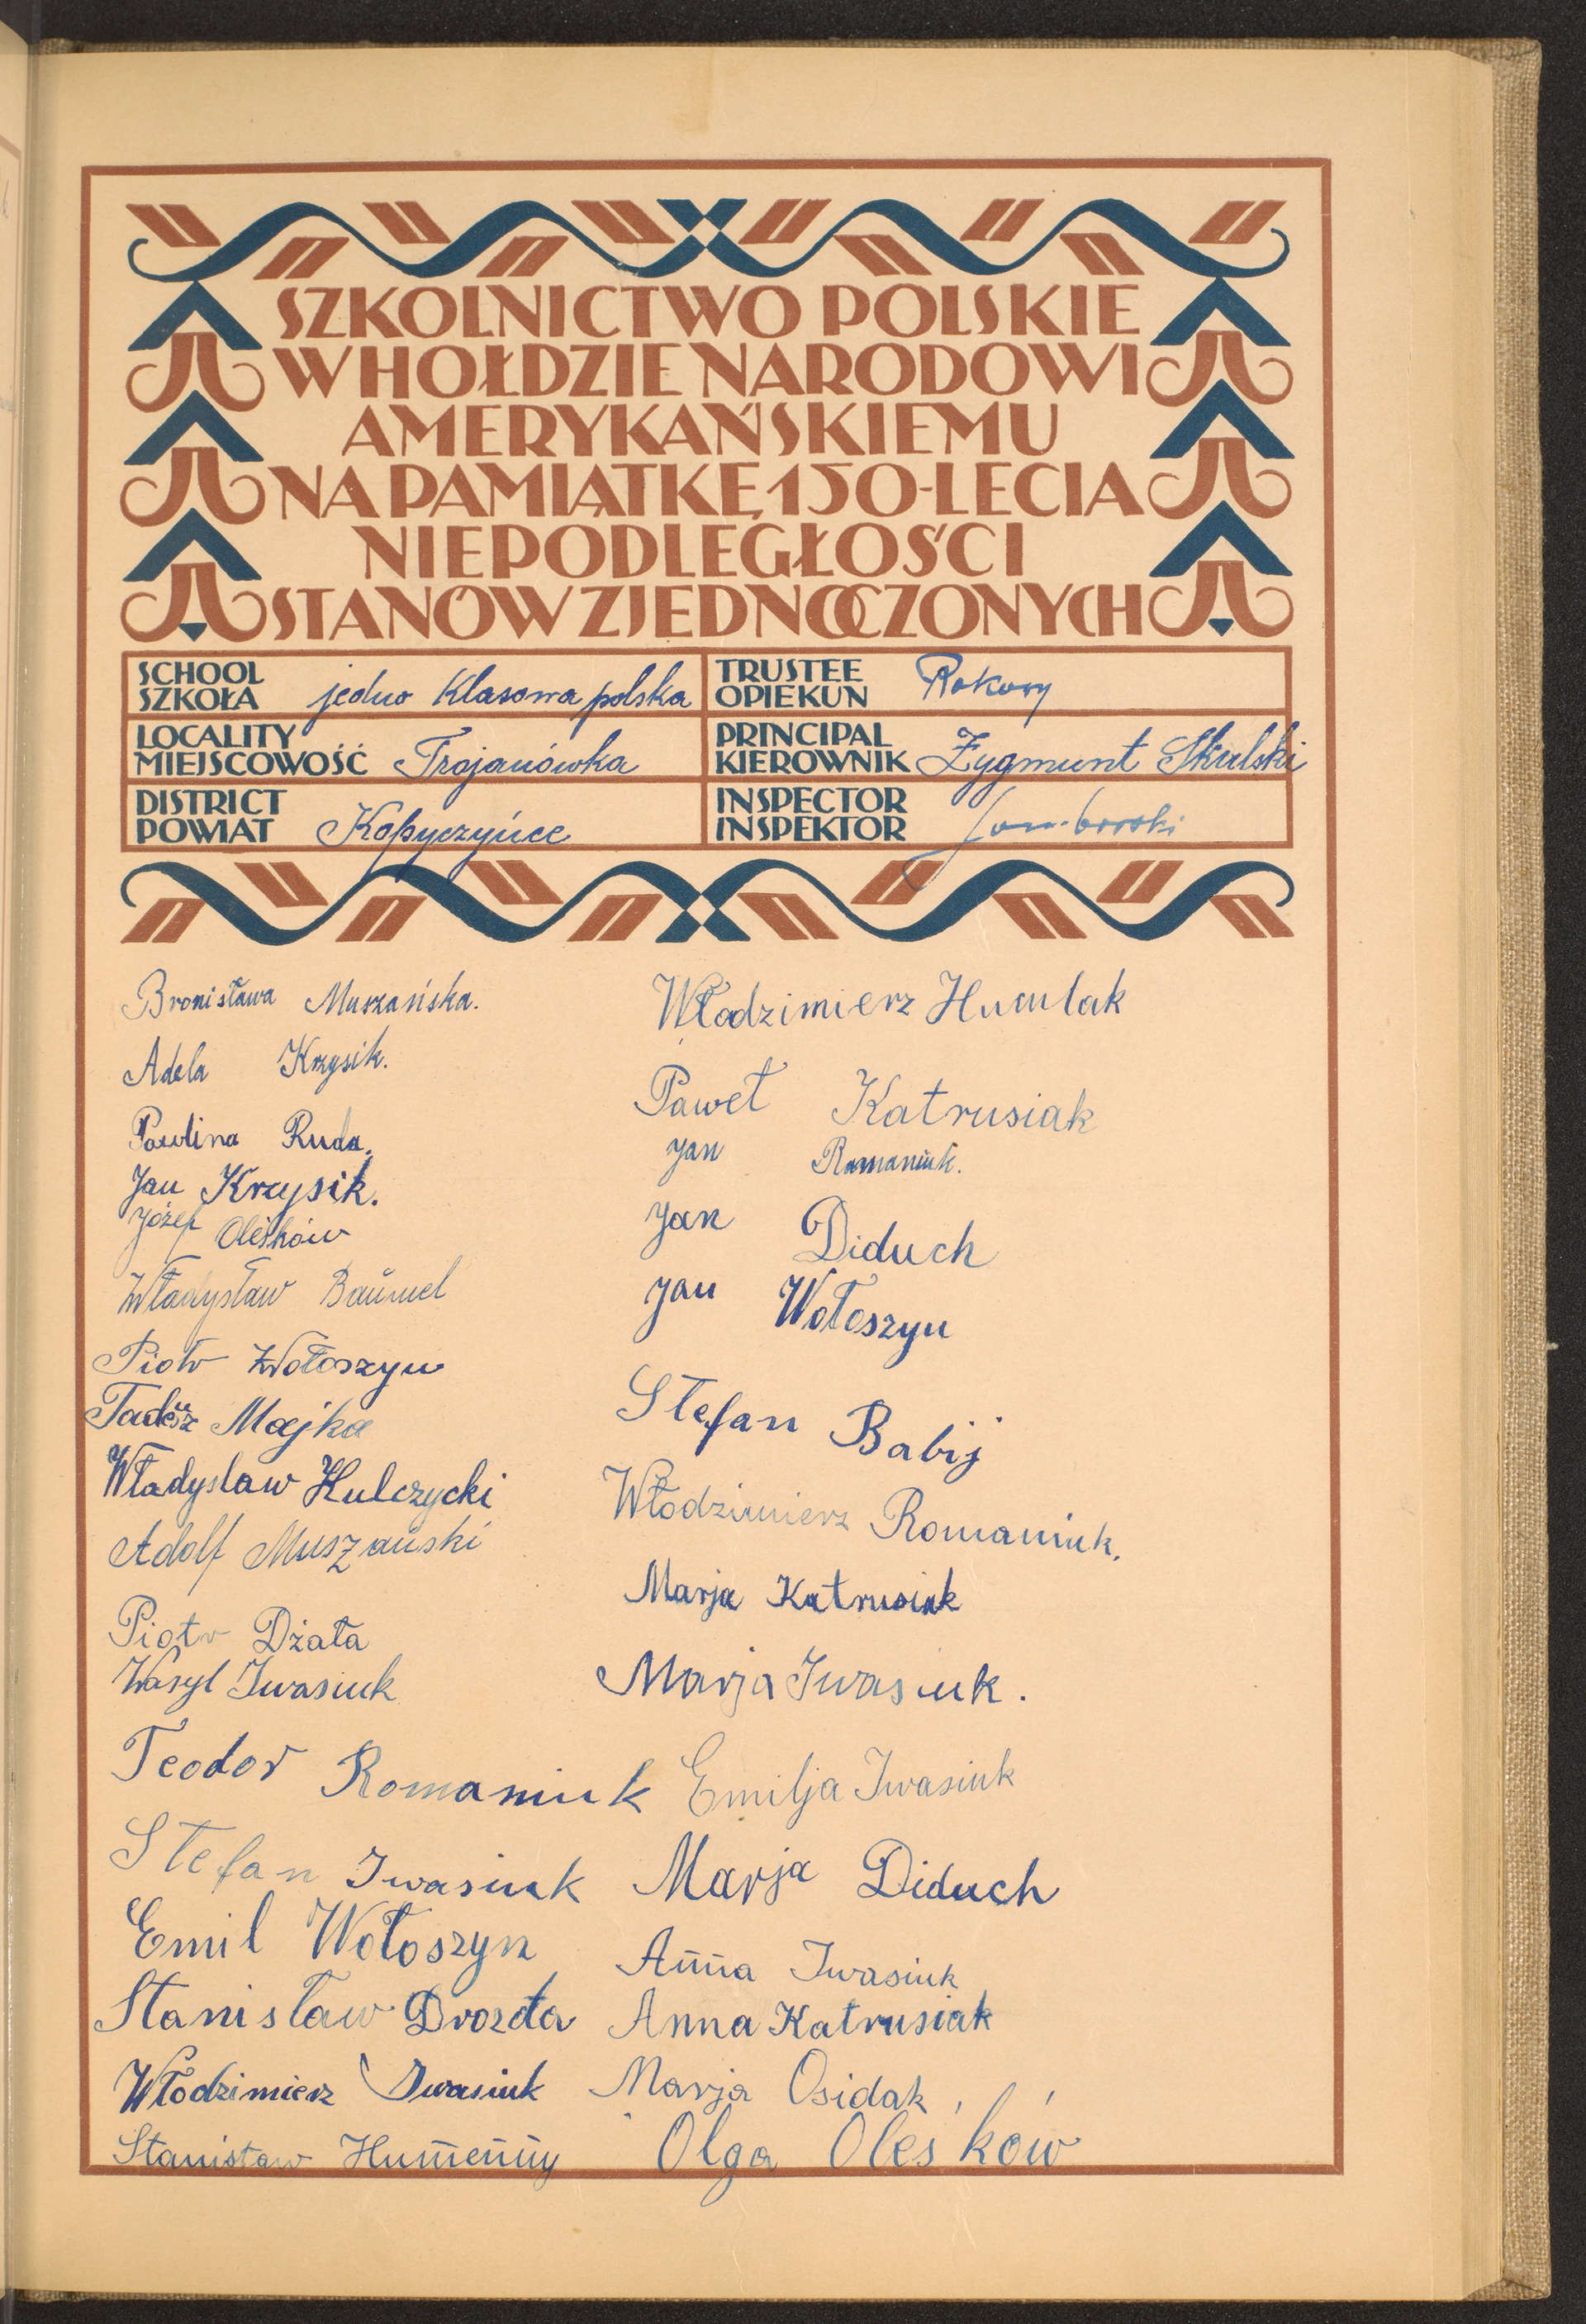 SZKOLNICTWO POLSKIE
W HOŁDZIE NARODOWI
AMERYKAŃSKIEMU
NA PAMIĄTKĘ 150-LECIA
NIEPODLEGŁOŚCI
STANÓW ZJEDNOCZONYCH
SCHOOL
SZKOŁA jedno Klasowa polska
TRUSTEE
OPIEKUN
LOCALITY
MIEJSCOWOŚĆ Trojanówka
PRINCIPAL
KIEROWNIK Zygmunt Skulski
DISTRICT
POWIAT Kopyczyńce
INSPECTOR
INSPEKTOR
Bronisława Muszańska.
Adela Krzysik.
Paulina Ruda.
Jan Krzysik.
Józef Oleśków
Władysław Baumel
Piotr Wołoszyn
Tadeusz Majka
Władysław Hulczycki
Adolf Muszański
Piotr Dżała
Wasyl Iwasiuk
Teodor Romaniuk
Stefan Iwasiuk
Emil Wołoszyn
Stanisław Drozda
Włodzimierz Iwasiuk
Stanisław Humenny
Włodzimierz Huculak
Paweł Katrusiak
Jan Romaniuk.
Jan Diduch
Jan Wołoszyn
Stefan Babij
Włodzimierz Romaniuk.
Marja Katrusiak
Marja Iwasiuk.
Emilja Iwasiuk
Marja Diduch
Anna Iwasiuk
Anna Katrusiak
Marja Osidak
Olga Oleśków